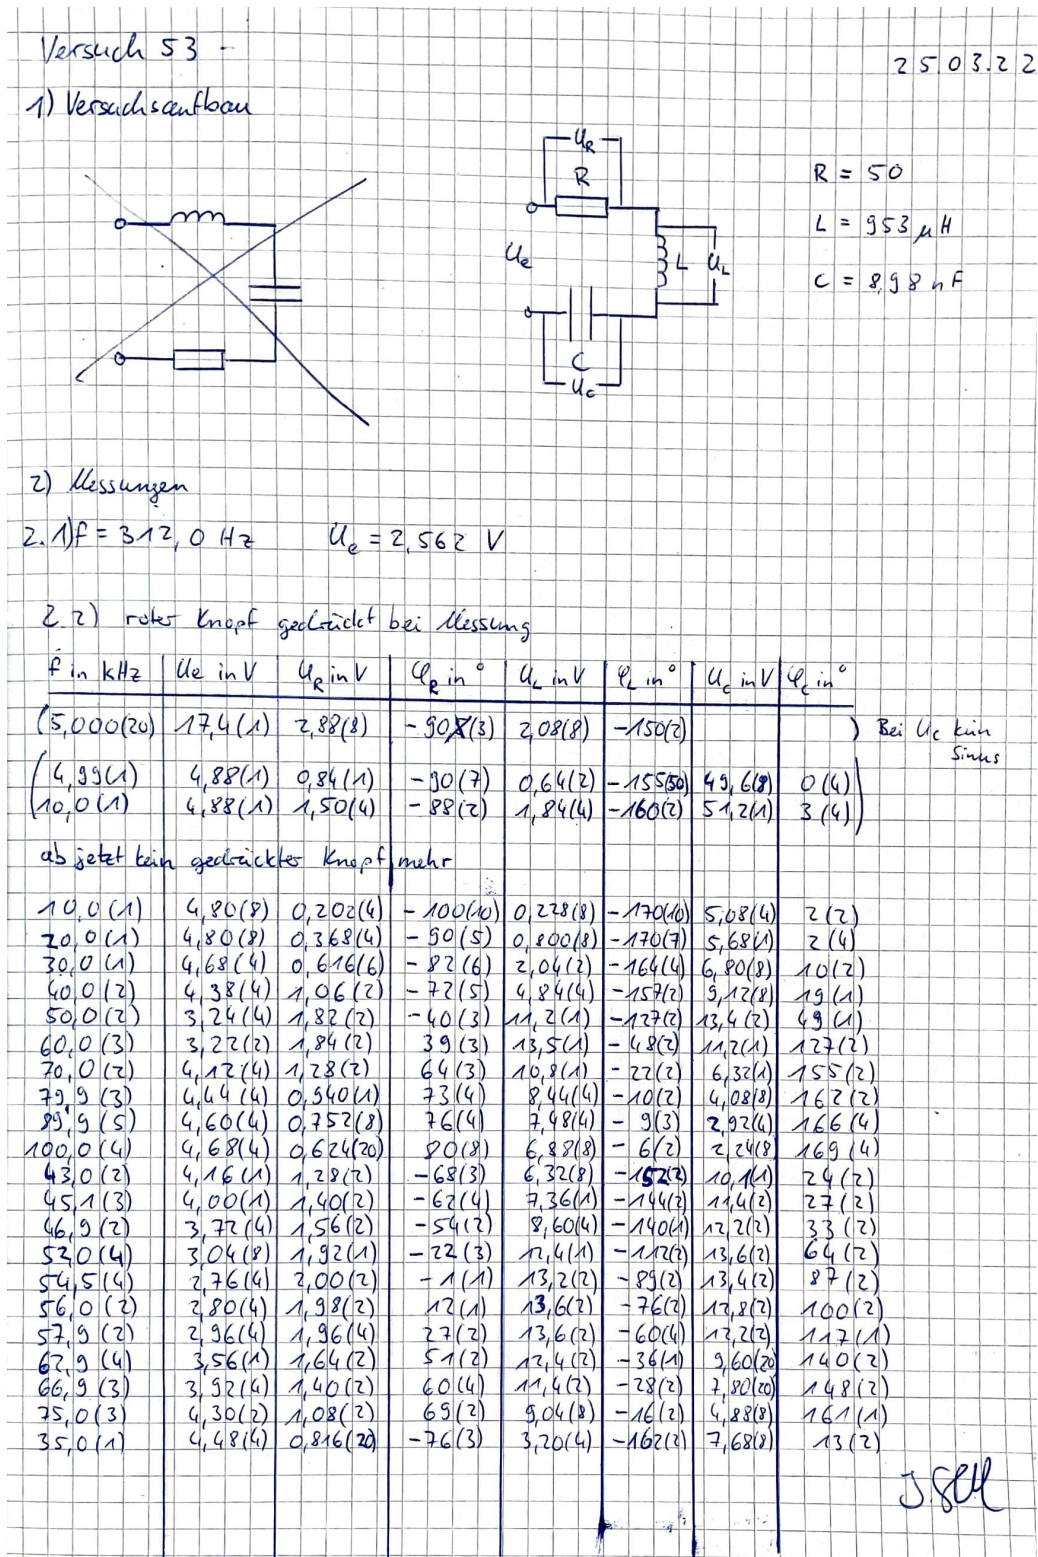 Versuch 53 -
25.03.22
1) Versuchsaufbau
U_R
R
U_e
L
U_L
C
U_C
R = 50
L = 953 µH
C = 8,98 nF
2) Messungen
2.1) f = 312,0 Hz U_e = 2,562 V
2.2) roter Knopf gedrückt bei Messung
f in kHz U_e in V U_R in V φ_R in ° U_L in V φ_L in ° U_C in V φ_C in °
(5,000(20) 17,4(1) 2,88(8) -90(3) 2,08(8) -150(2) ) Bei U_C kein
Sinus
(4,99(1) 4,88(1) 0,84(1) -90(7) 0,64(2) -155(50) 49,6(8) 0(4)
10,0(1) 4,88(1) 1,50(4) -88(2) 1,84(4) -160(2) 51,2(1) 3(4))
ab jetzt kein gedrückter Knopf mehr
10,0(1) 4,80(8) 0,202(4) -100(10) 0,228(8) -170(10) 5,08(4) 2(2)
20,0(1) 4,80(8) 0,368(4) -90(5) 0,800(8) -170(7) 5,68(1) 2(4)
30,0(1) 4,68(4) 0,616(6) -82(6) 2,04(2) -164(4) 6,80(8) 10(2)
40,0(2) 4,38(4) 1,06(2) -72(5) 4,84(4) -157(2) 9,12(8) 19(1)
50,0(2) 3,24(4) 1,82(2) -40(3) 11,2(1) -127(2) 13,4(2) 49(1)
60,0(3) 3,22(2) 1,84(2) 39(3) 13,5(1) -48(2) 11,2(1) 127(2)
70,0(2) 4,12(4) 1,28(2) 64(3) 10,8(1) -22(2) 6,32(1) 155(2)
79,9(3) 4,44(4) 0,940(1) 73(4) 8,44(4) -10(2) 4,08(8) 162(2)
89,9(5) 4,60(4) 0,752(8) 76(4) 7,48(4) -9(3) 2,92(4) 166(4)
100,0(4) 4,68(4) 0,624(20) 80(8) 6,88(8) -6(2) 2,24(8) 169(4)
43,0(2) 4,16(1) 1,28(2) -68(3) 6,32(8) -152(2) 10,1(1) 24(2)
45,1(3) 4,00(1) 1,40(2) -62(4) 7,36(1) -144(2) 11,4(2) 27(2)
46,9(2) 3,72(4) 1,56(2) -54(2) 8,60(4) -140(1) 12,2(2) 33(2)
52,0(4) 3,04(8) 1,92(1) -22(3) 12,4(1) -112(2) 13,6(2) 64(2)
54,5(4) 2,76(4) 2,00(2) -1(1) 13,2(2) -89(2) 13,4(2) 87(2)
56,0(2) 2,80(4) 1,98(2) 12(1) 13,6(2) -76(2) 12,8(2) 100(2)
57,9(2) 2,96(4) 1,96(4) 27(2) 13,6(2) -60(4) 12,2(2) 117(1)
62,9(4) 3,56(1) 1,64(2) 51(2) 12,4(2) -36(1) 9,60(20) 140(2)
66,9(3) 3,92(4) 1,40(2) 60(4) 11,4(2) -28(2) 7,80(20) 148(2)
75,0(3) 4,30(2) 1,08(2) 69(2) 9,04(8) -16(2) 4,88(8) 161(1)
35,0(1) 4,48(4) 0,816(20) -76(3) 3,20(4) -162(2) 7,68(8) 13(2)